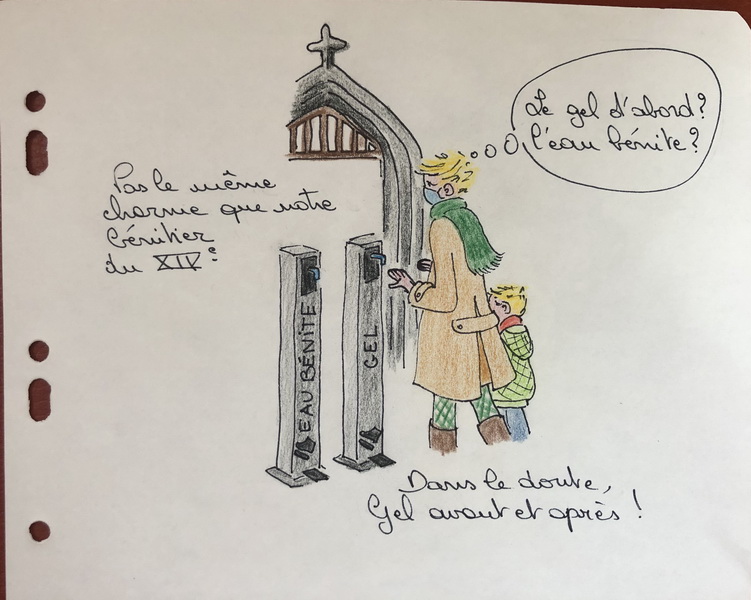 Le gel d'abord?
l'eau bénite?
Pas le même
charme que notre
bénitier
du XIVe
EAU BÉNITE
GEL
Dans le doute,
Gel avant et après !